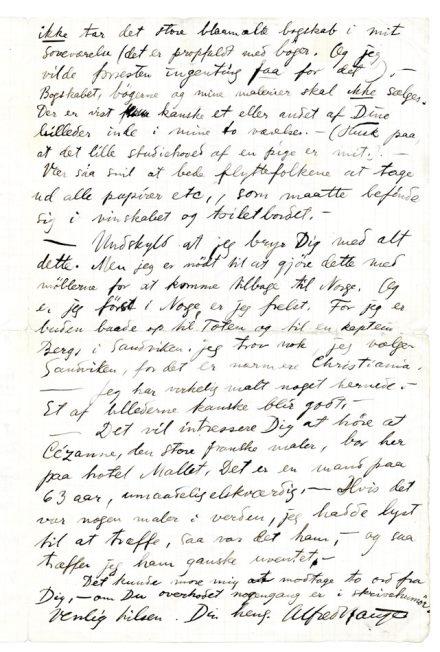 ikke tar det store blaamalte bogskab i mit
Soveværelse (det er propfuldt med bøger. Og jeg
vilde forresten ingenting faa for det). —
Bogskabet, bøgerne og mine malerier skal ikke sælges.
Der er vist kanske et eller andet af Dine
billeder inde i mine to værelser. — (Husk paa,
at det lille studiehoved af en pige er mit.) —
Vær saa snil at bede flyttefolkene at tage
ud alle papirer etc, som maatte befinde
sig i vinskabet og toiletbordet. —
— Undskyld at jeg bryr Dig med alt
dette. Men jeg er nødt til at gjøre dette med
møblerne for at komme tilbage til Norge. Og
er jeg först i Norge, er jeg frelst. For jeg er
buden baade op til Toten og til en kaptein
Berg, i Sandviken. jeg tror nok jeg vælger
Sandviken, for det er nærmere Christiania.
— jeg har virkelig malt noget hernede. —
Et af billederne kanske blir godt. —
— Det vil intressere Dig at höre at
Cézanne, den store franske maler, bor her
paa hotel Mallet. Det er en mand paa
63 aar, umaadelig elskværdig. — Hvis det
var nogen maler i verden, jeg hadde lyst
til at træffe, saa var det ham, — og saa
træffer jeg ham ganske uventet. —
Det kunde more mig at modtage to ord fra
Dig, — om Du overhodet nogengang er i skrivehumör.
Venlig hilsen. Din heng. Alfred Hauge